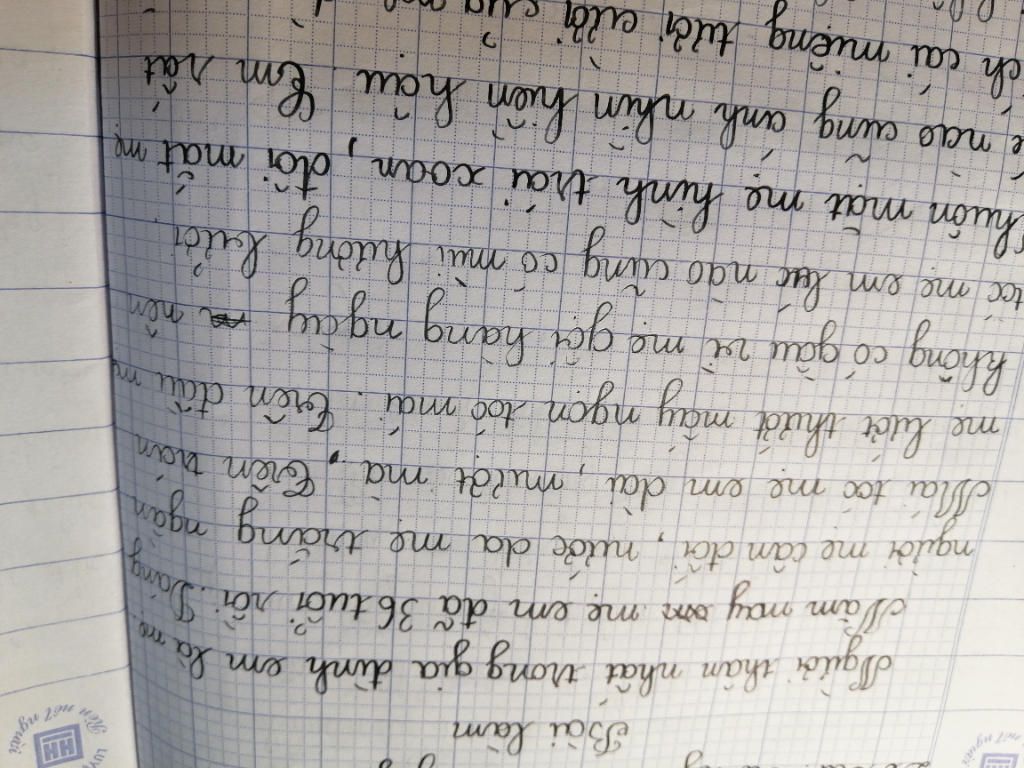 Bài làm
Người thân nhất trong gia đình em là mẹ.
Năm nay mẹ em đã 36 tuổi rồi. Dáng
người mẹ cân đối, nước da mẹ trắng ngần
Mái tóc mẹ em dài, mượt mà. Trên trán
mẹ lướt thướt mấy ngọn tóc mái. Trên đầu mẹ
không có gầu vì mẹ gội hàng ngày nên
tóc mẹ em lúc nào cũng có mùi hương bưởi
khuôn mặt mẹ hình trái xoan, đôi mắt mẹ
nào cũng ánh nhìn hiền hậu. Em rất
cái miệng tươi cười của